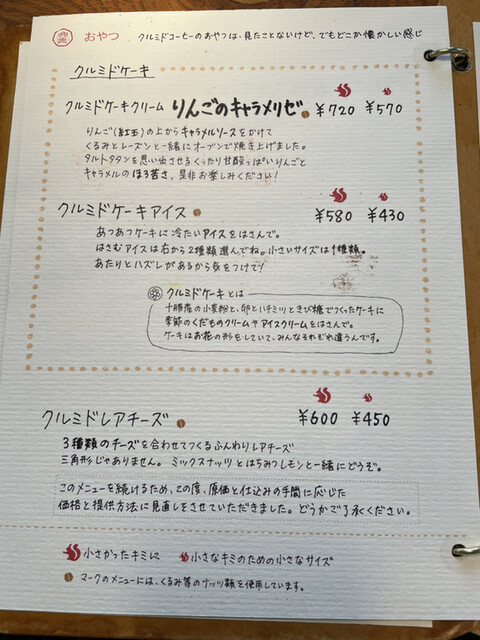 おやつ クルミドコーヒーのおやつは、見たことないけど、でもどこか懐かしい感じ
クルミドケーキ
クルミドケーキクリーム りんごのキャラメリゼ ¥720 ¥570
りんご(紅玉)の上からキャラメルソースをかけて
くるみとレーズンと一緒にオーブンで焼き上げました。
タルトタタンを思い出させるくったり甘酸っぱいりんごと
キャラメルのほろ苦さ、是非お楽しみください!
クルミドケーキアイス ¥580 ¥430
あつあつケーキに冷たいアイスをはさんで。
はさむアイスは右から2種類選んでね。小さいサイズは1種類。
あたりとハズレがあるから気をつけて!
クルミドケーキとは
十勝産の小麦粉と、卵とハチミツときび糖でつくったケーキに
季節のくだものクリームやアイスクリームをはさんで。
ケーキはお花の形をしていて、みんなそれぞれ違うんです。
クルミドレアチーズ ¥600 ¥450
3種類のチーズを合わせてつくるふんわりレアチーズ
三角形じゃありません。ミックスナッツとはちみつレモンと一緒にどうぞ。
このメニューを続けるため、この度、原価と仕込みの手間に応じた
価格と提供方法に見直しをさせていただきました。どうかご了承ください。
小さかったキミに 小さなキミのための小さなサイズ
マークのメニューには、くるみ等のナッツ類を使用しています。